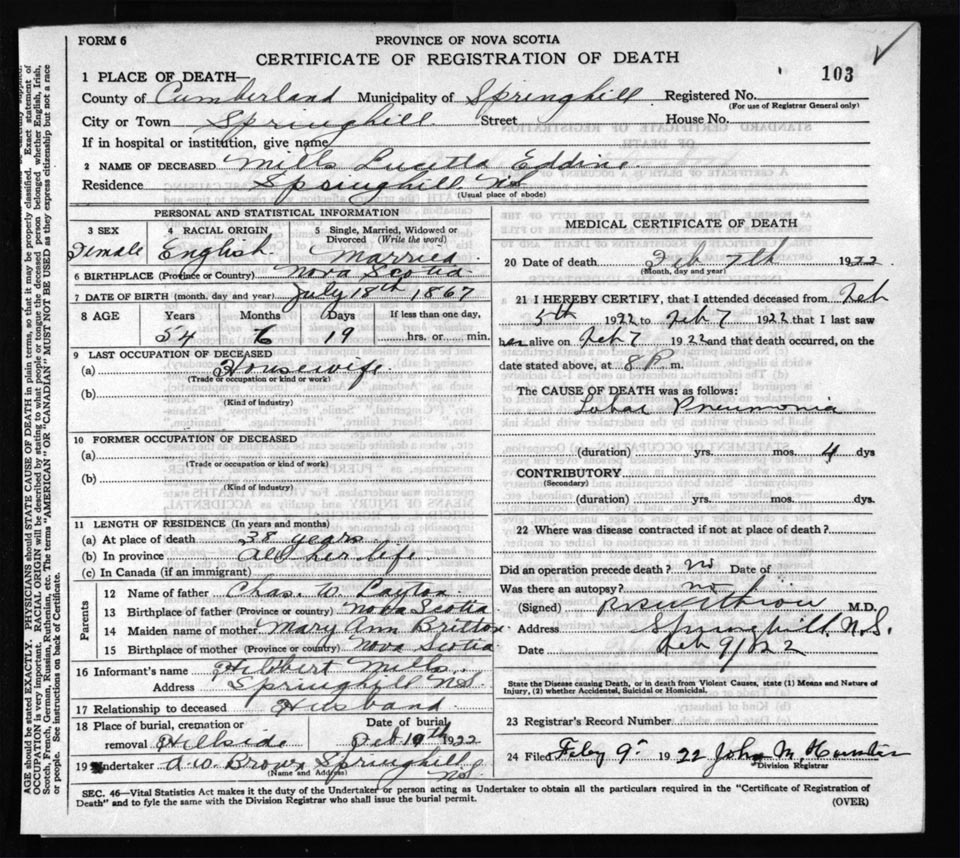 FORM 6
PROVINCE OF NOVA SCOTIA
CERTIFICATE OF REGISTRATION OF DEATH
103
1 PLACE OF DEATH—
County of Cumberland Municipality of Springhill Registered No.
(For use of Registrar General only)
City or Town Springhill Street House No.
If in hospital or institution, give name
2 NAME OF DECEASED Mills Lucetta Eddine
Residence Springhill NS
(Usual place of abode)
PERSONAL AND STATISTICAL INFORMATION
3 SEX 4 RACIAL ORIGIN 5 Single, Married, Widowed or
Divorced (Write the word)
Female English Married
6 BIRTHPLACE (Province or Country) Nova Scotia
7 DATE OF BIRTH (month, day and year) July 18th 1867
8 AGE Years Months Days If less than one day,
54 6 19 hrs. or min.
9 LAST OCCUPATION OF DECEASED
(a) Housewife
(Trade or occupation or kind or work)
(b)
(Kind of industry)
10 FORMER OCCUPATION OF DECEASED
(a)
(Trade or occupation or kind of work)
(b)
(Kind of industry)
11 LENGTH OF RESIDENCE (In years and months)
(a) At place of death 38 years
(b) In province All her life
(c) In Canada (if an immigrant)
Parents
12 Name of father Chas. W Layton
13 Birthplace of father (Province or country) Nova Scotia
14 Maiden name of mother Mary Ann Britton
15 Birthplace of mother (Province or country) Nova Scotia
16 Informant's name Hibbert Mills
Address Springhill NS.
17 Relationship to deceased Husband
18 Place of burial, cremation or Date of burial
removal Hillside Feb 10th 1922
19 Undertaker A. W. Brown Springhill
(Name and Address) N.S.
MEDICAL CERTIFICATE OF DEATH
20 Date of death Feb 7th 1922
(Month, day and year)
21 I HEREBY CERTIFY, that I attended deceased from Feb
5th 1922 to Feb 7 1922 that I last saw
her alive on Feb 7 1922 and that death occurred, on the
date stated above, at 8 P. m.
The CAUSE OF DEATH was as follows:
Lobar Pneumonia
(duration) yrs. mos. 4 dys
CONTRIBUTORY
(Secondary)
(duration) yrs. mos. dys.
22 Where was disease contracted if not at place of death?
Did an operation precede death? no Date of
Was there an autopsy? no
(Signed) M.D.
Address Springhill, N.S.
Date Feb 9/22
State the Disease causing Death, or in death from Violent Causes, state (1) Means and Nature of
Injury, (2) whether Accidental, Suicidal or Homicidal.
23 Registrar's Record Number
24 Filed Feby 9th 1922 John M. Hunter
Division Registrar
SEC. 46—Vital Statistics Act makes it the duty of the Undertaker or person acting as Undertaker to obtain all the particulars required in the "Certificate of Registration of
Death" and to fyle the same with the Division Registrar who shall issue the burial permit.
(OVER)
AGE should be stated EXACTLY. PHYSICIANS should STATE CAUSE OF DEATH in plain terms, so that it may be properly classified. Exact statement of
OCCUPATION is very important. RACIAL ORIGIN will be described by stating to what people or tongue the deceased person belonged whether English, Irish,
Scotch, French, German, Russian, Ruthenian, etc. The terms "AMERICAN" OR "CANADIAN" MUST NOT BE USED as they express citizenship but not a race
or people. See instructions on back of Certificate.